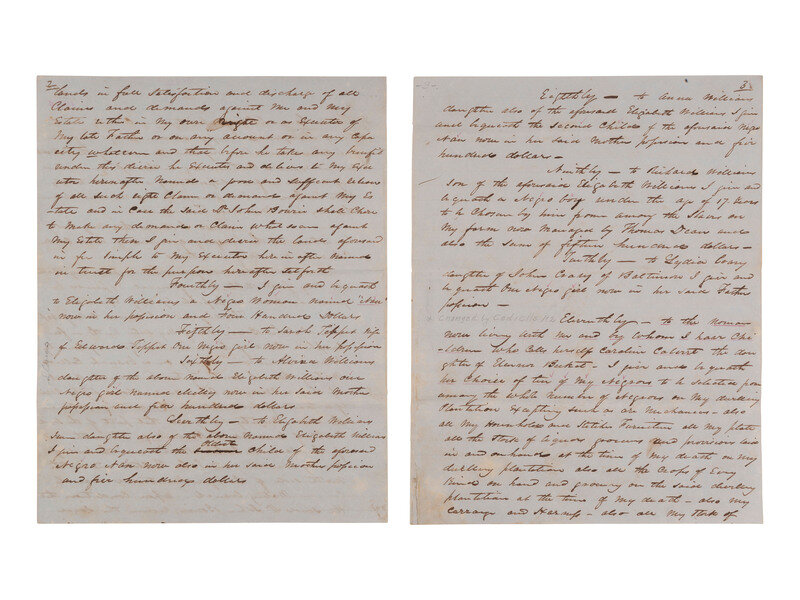 2
lands in full satisfaction and discharge of all
Claims and demands against me and my
Estate either in my own Right or as Executor of
My late Father or on any account or in any Capa
city whatever and that before he takes any benefit
under this devise he Executes and delivers to my Exe
cutor hereinafter Named a good and sufficient release
of all such Claim or demand against My Es-
tate and in Case the said Dr John Bowie shall Chose
to make any demand or Claim whatsoever against
My Estate then I give and devise the lands aforesaid
in fee simple to my Executor herein after Named
in trust for the purposes hereafter set forth
Fourthly — I give and bequeath
to Elizabeth Williams a Negro Woman named
now in her possession and Four Hundred Dollars
Fifthly — to Sarah Tippet wife
of Edward Tippet One Negro girl now in her possession
Sixthly — to Alvina Williams
daughter of the above named Elizabeth Williams one
Negro girl named now in her said Mother
possession and five hundred dollars —
Seventhly — to Elizabeth Williams
daughter also of the above Named Elizabeth Williams
I give and bequeath the Oldest Child of the aforesaid
Negro Nan now also in her said Mothers possession
and five hundred dollars
-3-
3
Eighthly — to Anna Williams
daughter also of the aforesaid Elizabeth Williams I give
and bequeath the Second Child of the aforesaid Negro
Nan now in her said Mothers possession and five
hundred dollars —
Ninthly — to Richard Williams
Son of the aforesaid Elizabeth Williams I give and
bequeath a Negro boy under the age of 17 Years
to be Chosen by him from among the Slaves on
My farm now Managed by Thomas Dean and
also the Sum of fifteen hundred dollars —
Tenthly — to Lydia Coary
daughter of John Coary of Baltimore I give and
bequeath One Negro girl now in her said Father
possession —
Changed by Codicil
Eleventhly — to the Woman
Now living with me and by Whom I have Chi-
ldren Who Calls herself Caroline Calvert the dau
ghter of Eleanor Becket — I give and bequeath
her Choice of ten of my Negroes to be selected from
among the Whole Number of Negroes on My dwelling
Plantation Excepting such as are Mechanics — also
all My Household and Kitchen Furniture all My plate
all the Stock of liquors groceries and provisions laid
in and on hand at the time of My death on My
dwelling plantation also all the Crops of Every
Kind on hand and growing on the said dwelling
plantation at the time of My death — also My
Carriage and Harness — also all My Stock of